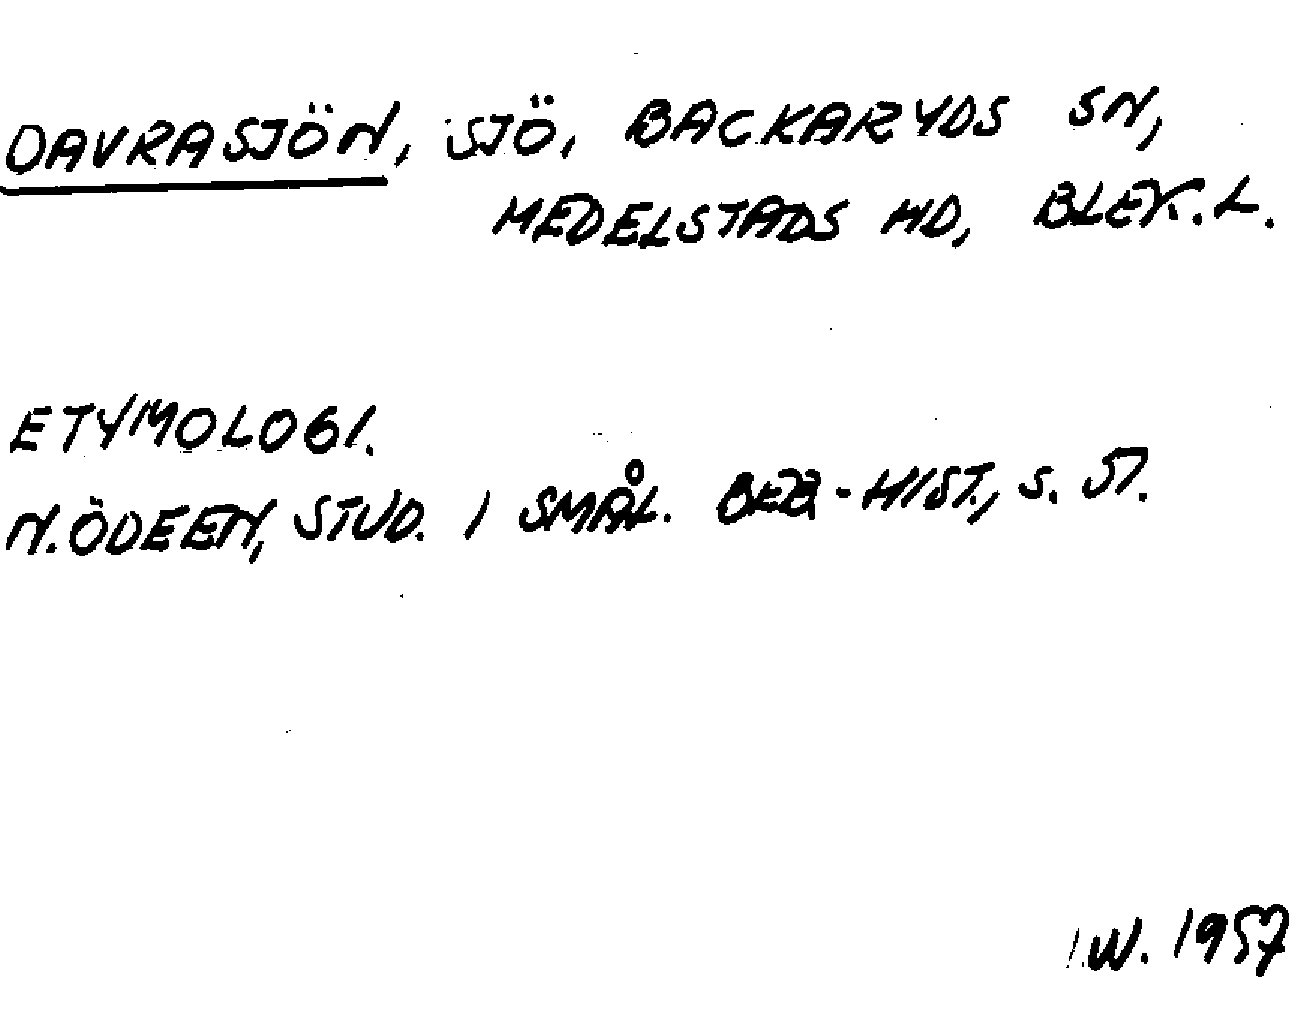 DAVRASJÖN, SJÖ, BACKARYDS SN,
MEDELSTADS HD, BLEK. L.
ETYMOLOGI.
N. ÖDEEN, STUD. I SMÅL. BEB-HIST., S. 57.
I.W. 1957